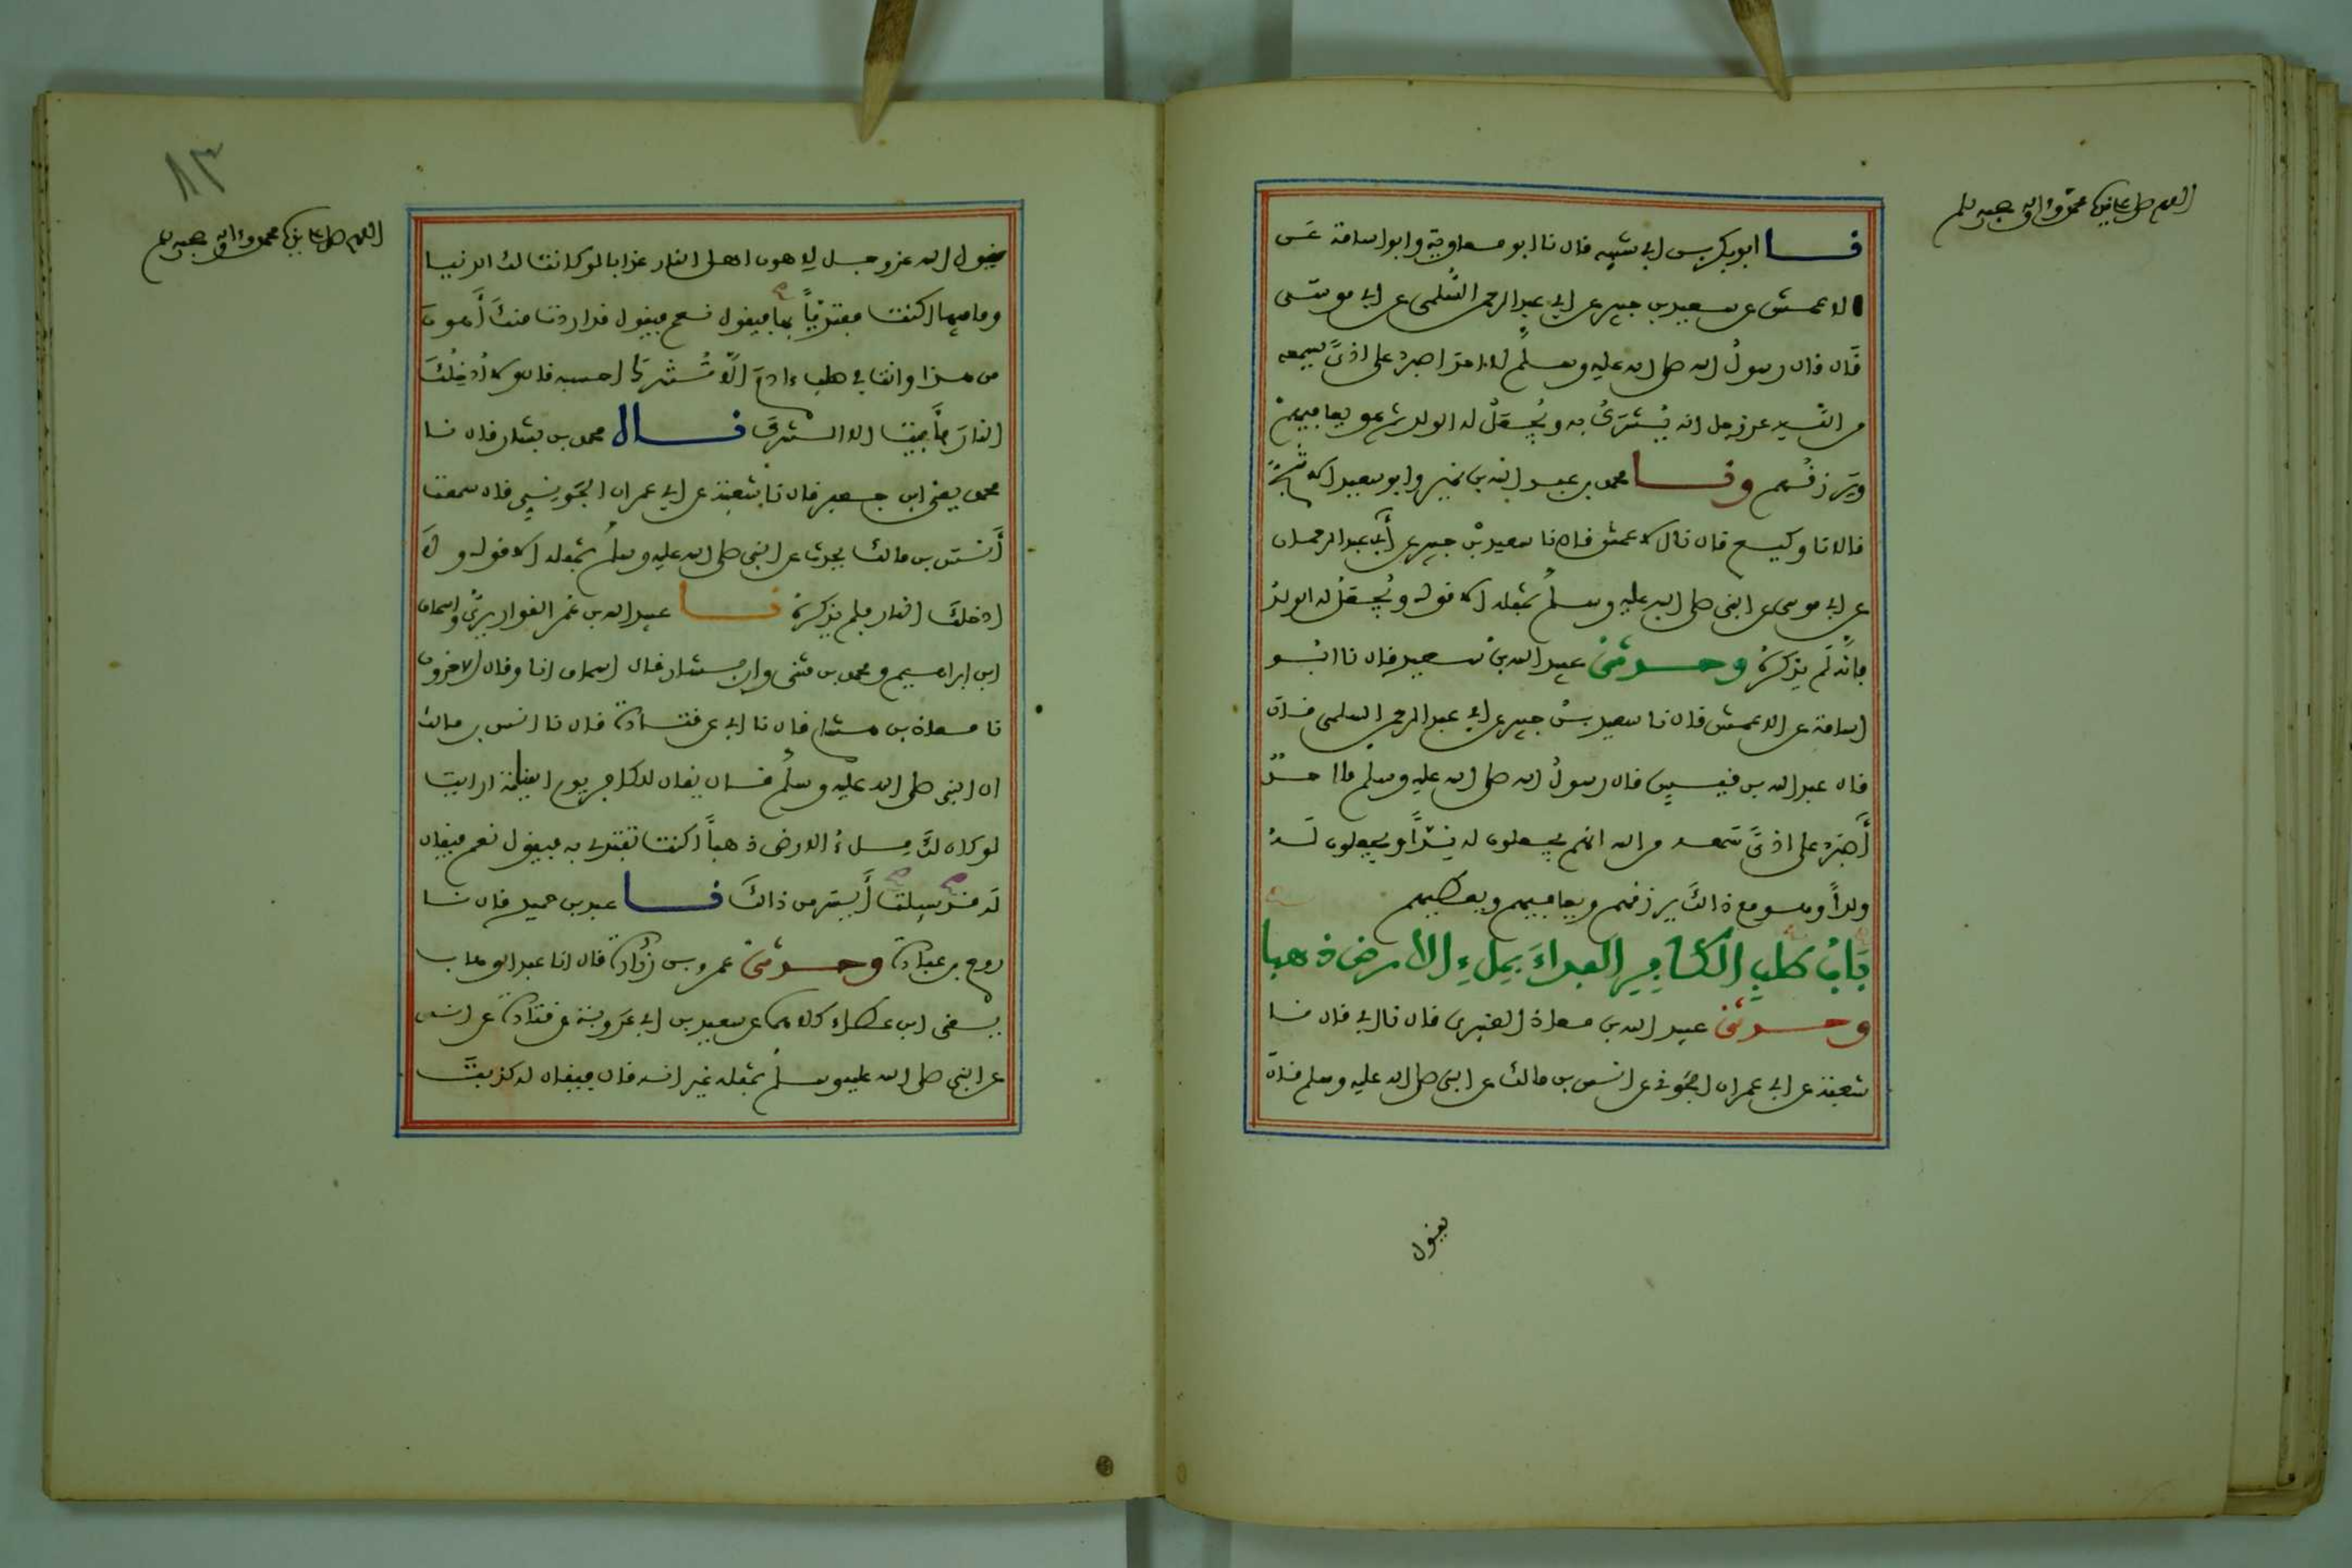 اللهم صل على نبينا محمد وءاله وصحبه وسلم
نا ابو بكر بن ابي شيبه قال نا ابو معاوية وابو اسامة عن
الاعمش عن سعيد بن جبير عن ابي عبد الرحمن السُّلمي عن ابي موسى
قال قال رسولُ الله صلى الله عليه وسلم لا احدَ اصبر على اذىً يسمعه
من اللهِ عز وجل انه يُشْرَكُ به ويُجْعَلُ له الولد ثم هو يعافيهمْ
ويَرزقُهم ونا محمد بن عبد الله بن نمير وابو سعيد الاشجّ
قالا نا وكيع قال نا الاعمش قال نا سعيد بْن جبير عن أبي عبد الرحمان
عن ابي موسى عن النبي صلى الله عليه وسلم بمثله الا قوله ويُجعَلُ له الولدُ
فانّه لَم يذكرهُ وحدثني عبيد الله بن سعيد قال نا ابُو
اسامة عن الاعمش قال نا سعيد بنُ جبير عن ابي عبد الرحمن السلمي قال
قال عبد الله بن قيسٍ قال رسولُ الله صلى الله عليه وسلم ما احدٌ
أصْبَر على اذىً سَمعه من الله انهم يجعلون له نِدّاً ويجعلون لَهُ
ولداً وهو مع ذالكَ يرزقهم ويعافيهم ويعطيهم
بَابُ طلبِ الكافِرِ الفداءَ بمِلءِ الارض ذهبا
وحدثني عبيد الله بن معاذ العنبري قال نا ابي قال نا
شعبة عن ابي عمران الجَوني عن انس بن مالك عن النبي صلى الله عليه وسلم قال
يقول
٨٣
اللهم صل على نبينا محمد وءاله وصحبه وسلم
يقول الله عز وجل لاهون اهل النار عذابا لو كانت لك الدنيا
وما فيها اكنت مفتدِياً بها فيقول نعم فيقول قد اردت منكَ أَهون
من هذا وانت في صلب ءادمَ الّا تُشْركَ احسبه قال ولا أُدخِلُكَ
النارَ فأبيت الا الشركَ قال محمد بن بشار قال نا
محمد يعني ابن جعفر قال نا شعبة عن ابي عمران الجَونِيِ قال سمعت
أَنسَ بن مالك يحدث عن النبي صلى الله عليه وسلم بمثله الا قوله ولا
ادخلكَ النار فلم يذكرهُ نا عبيد الله بن عُمر القواريريُّ واسحاق
ابن ابراهيم ومحمد بن مثنى وابن بشار قال اسحاق انا وقال الاخرون
نا معاذ بن هشام قال نا ابي عن قتادة قال نا انس بن مالك
ان النبي صلى الله عليه وسلم قال يقال للكافر يوم القيامة ارايت
لو كان لكَ مِلءُ الارض ذهباً اكنت تفتدي به فيقول نعم فيقال
لَه قد سيلتَ أَيسَر من ذالكَ نا عبد بن حميد قال نا
روح بن عبادة وحدثني عمرو بن زُرارة قال انا عبد الوهاب
يعنى ابن عطاء كلاهما عن سعيد بن ابي عَروبة عن قتادة عن انس
عن النبي صلى الله عليه وسلم بمثله غير انه قال فيقال له كذبتَ